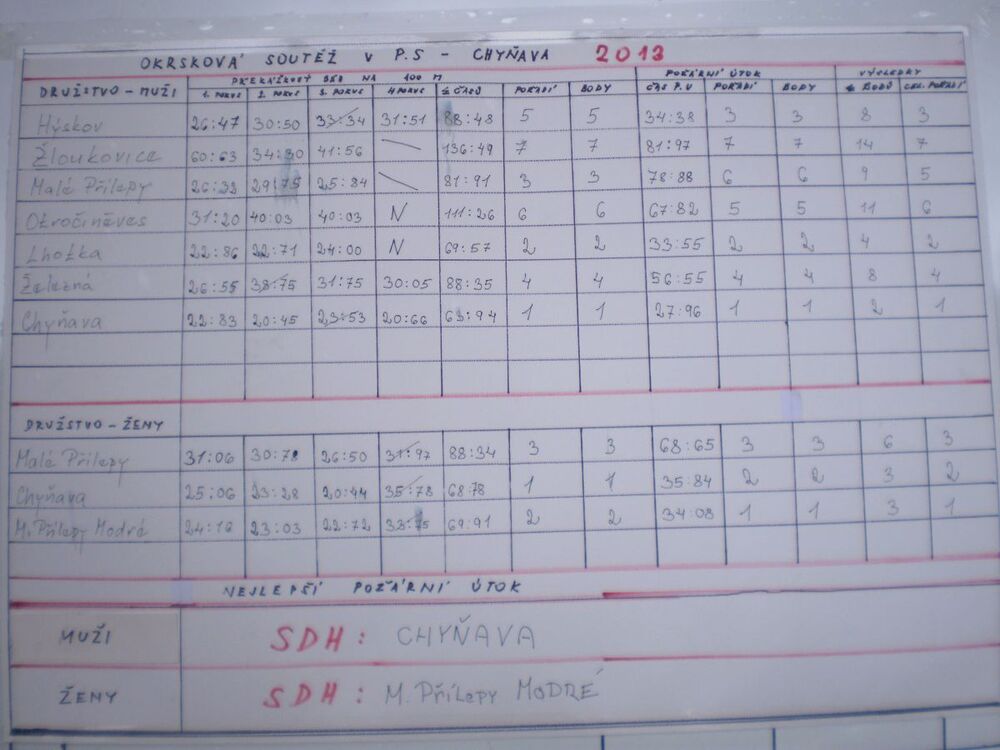 OKRSKOVÁ SOUTĚŽ V P.S - CHYŇAVA 2013
PŘEKÁŽKOVÝ BĚH NA 100 M POŽÁRNÍ ÚTOK VÝSLEDKY
DRUŽSTVO - MUŽI 1. POKUS 2. POKUS 3. POKUS 4 POKUS Σ ČASŮ POŘADÍ BODY ČAS P.Ú POŘADÍ BODY Σ BODŮ CEL. POŘADÍ
Hýskov 26:47 30:50 33:34 31:51 88:48 5 5 34:38 3 3 8 3
Žloukovice 60:63 34:30 41:56 136:49 7 7 81:97 7 7 14 7
Malé Přílepy 26:32 29:75 25:84 81:91 3 3 78:88 6 6 9 5
Otročiněves 31:20 40:03 40:03 N 111:26 6 6 67:82 5 5 11 6
Lhotka 22:86 22:71 24:00 N 69:57 2 2 33:55 2 2 4 2
Železná 26:55 38:75 31:75 30:05 88:35 4 4 56:55 4 4 8 4
Chyňava 22:83 20:45 23:53 20:66 63:94 1 1 27:96 1 1 2 1
DRUŽSTVO - ŽENY
Malé Přílepy 31:06 30:78 26:50 31:97 88:34 3 3 68:65 3 3 6 3
Chyňava 25:06 23:28 20:44 35:78 68:78 1 1 35:84 2 2 3 2
M. Přílepy Modré 24:16 23:03 22:72 33:75 69:91 2 2 34:08 1 1 3 1
NEJLEPŠÍ POŽÁRNÍ ÚTOK
MUŽI SDH: CHYŇAVA
ŽENY SDH: M. Přílepy MODRÉ